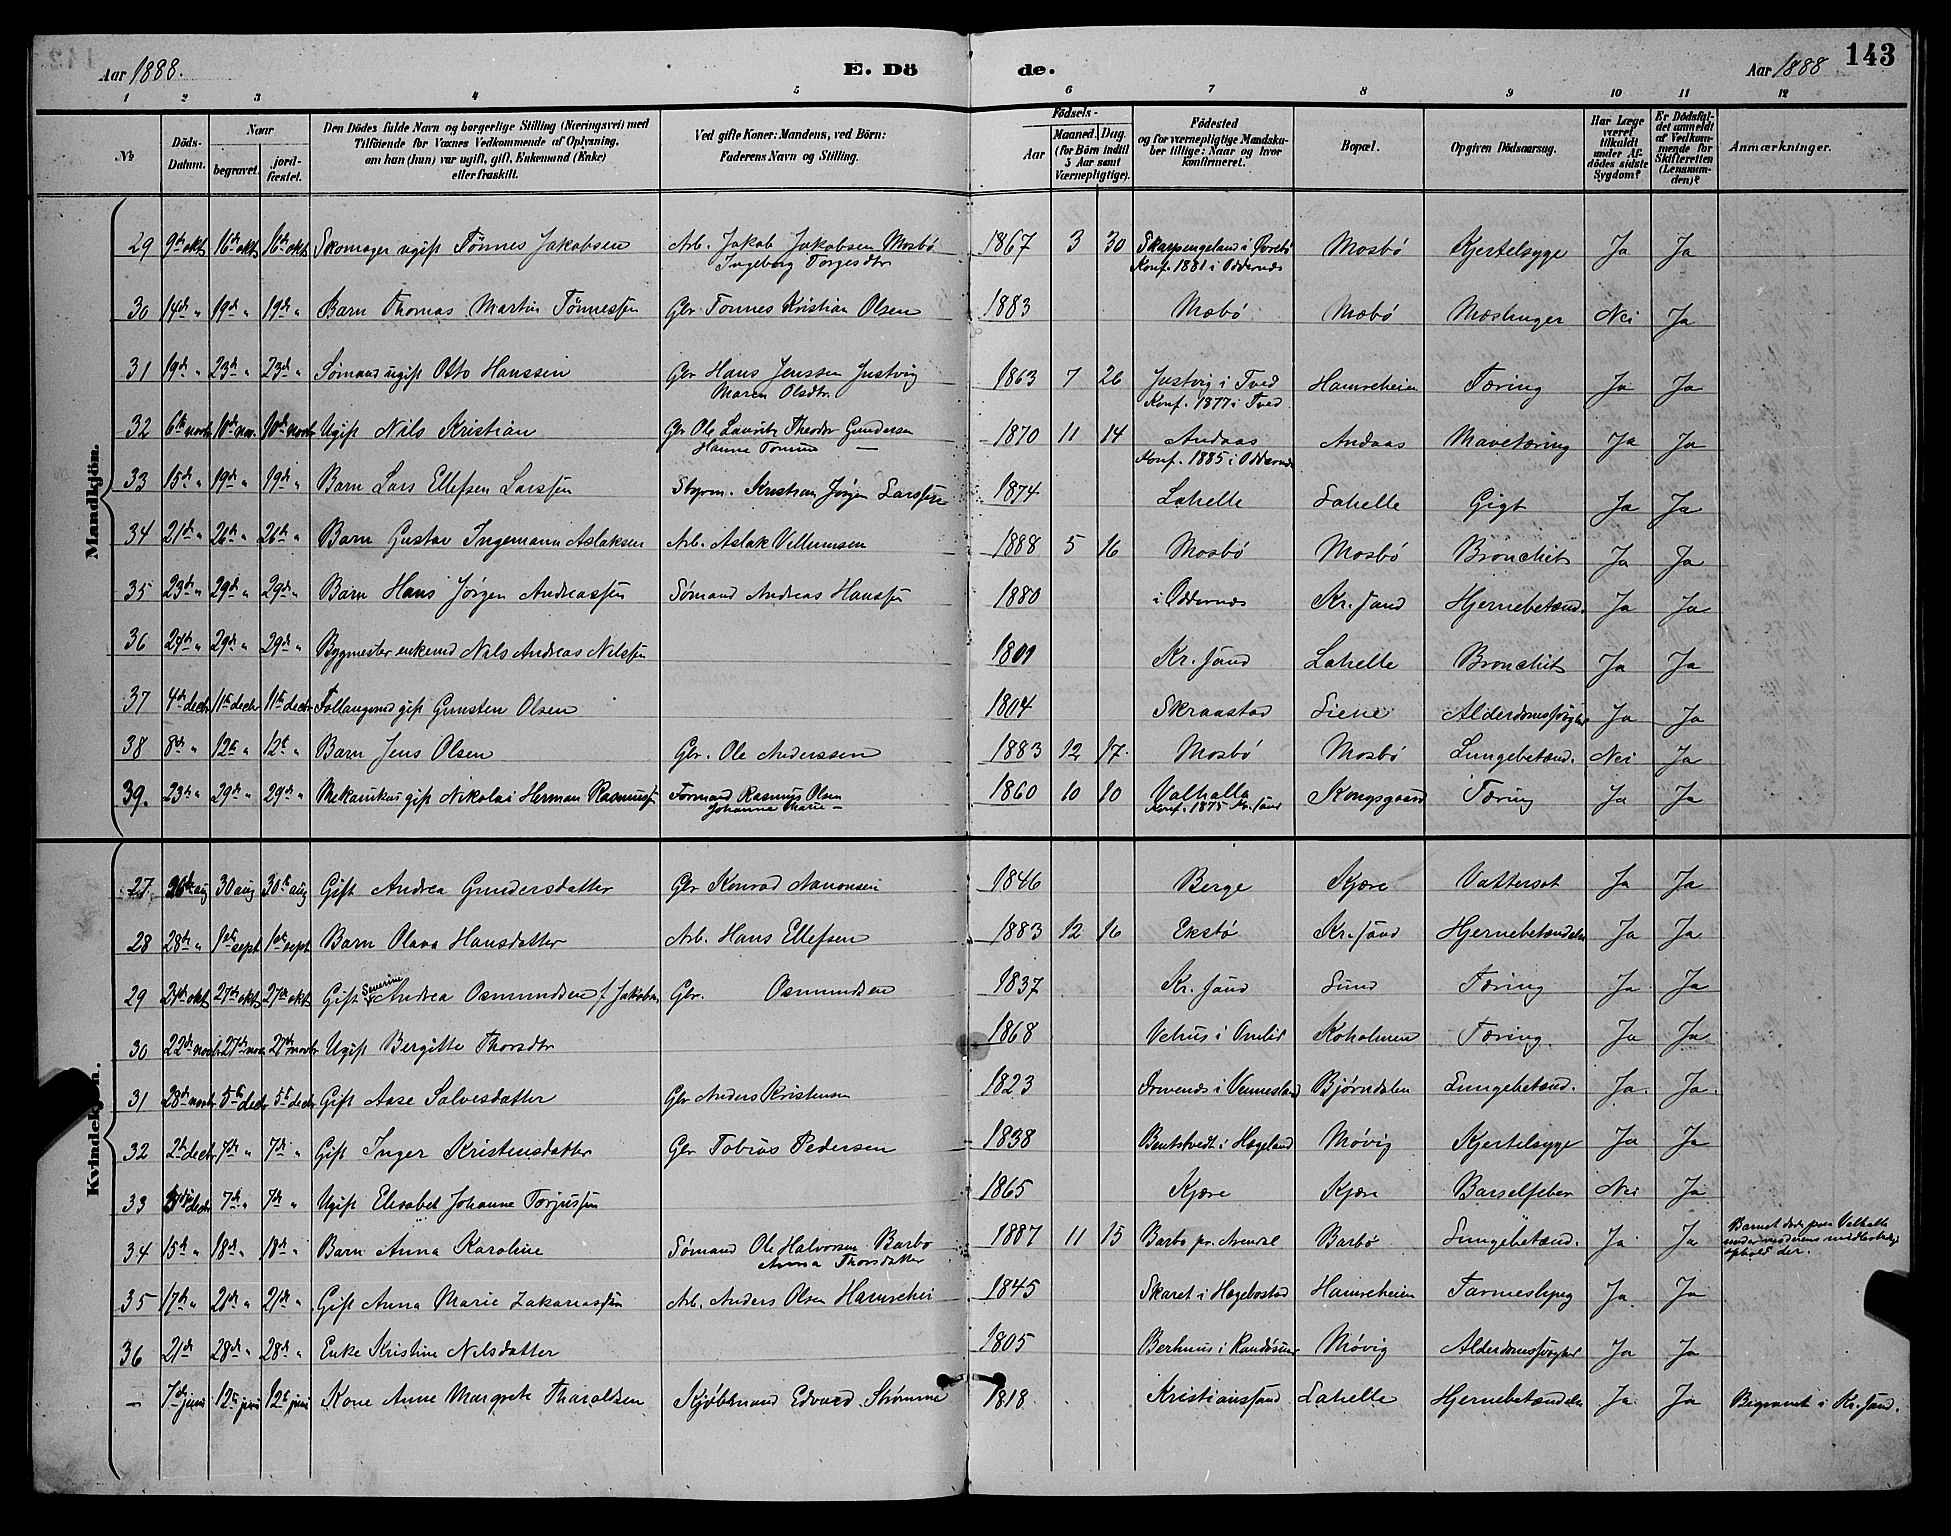 Aar 1888. E. Dö de. Aar 1888 143
1 2 3 4 5 6 7 8 9 10 11 12
No
Döds-Datum.
Naar
begravet.
jordfæstet.
Den Dödes fulde Navn og borgerlige Stilling (Næringsvei) med
Tilföiende för Voxnes Vedkommende af Oplysning,
om han (hun) var ugift, gift, Enkemand (Enke)
eller fraskilt.
Ved gifte Koner: Mandens, ved Börn:
Faderens Navn og Stilling.
Födsels-
Aar
Maaned. Dag.
(for Börn indtil
5 Aar samt
Værnepligtige).
Födested
og for værnepligtige Mandskaber
tillige: Naar og hvor
konfirmeret.
Bopæl.
Opgiven Dödsaarsag.
Har Læge været tilkaldt under Afdödes sidste Sygdom?
Er Dödsfaldet anmeldt af Vedkommende for Skifteretten (Lensmanden)?
Anmærkninger.
Mandkjön.
29 9de okt 16de okt 16de okt Skomager ugift Tønnes Jakobsen Arb. Jakob Jakobsen Mosbø 1867 3 30 Skarpengeland i Øvrebø Mosbø Kjertelsyge Ja Ja
Ingeborg Torjesdtr Konf. 1881 i Oddernes
30 14de " 19de " 19de " Barn Thomas Martin Tønnessen Gbr. Tønnes Kristian Olsen 1883 Mæbø Mæbø Mæslinger Nei Ja
31 19de " 23de " 23de " Sømand ugift Otto Hanssen Gbr Hans Jenssen Justvig 1863 7 26 Justvig i Tved Hamreheien Tæring Ja Ja
Maren Olsdtr Konf. 1877 i Tved
32 6te novbr 10de nov. 10de novbr Ugift Nils Kristian Gbr Ole Lauritz Theodor Gundersen 1870 11 14 Andaas Andaas Mavetæring Ja Ja
Hanne — Konf. 1885 i Oddernes
33 15de " 19de " 19de " Barn Lars Ellefsen Larssen Styrm. Kristian Jørgen Larssen 1874 Lahelle Lahelle Gigt Ja Ja
34 21de " 26de " 26de " Barn Gustav Ingemann Aslaksen Arb. Aslak Villumsen 1888 5 16 Mosbø Mosbø Bronchit Ja Ja
35 23de " 29de " 29de " Barn Hans Jørgen Andreassen Sømand Andreas Hanssen 1880 i Oddernes Kr. sand Hjernebetænd. Ja Ja
36 24de " 29de " 29de " Bygmester enkemd Nils Andreas Nilssen 1801 Kr. sand Lahelle Bronchit Ja Ja
37 4de decbr 11te decbr 11te decbr Føllaugsmd gift Gunsten Olsen 1804 Skraastad Liene Alderdomssvaghed Ja Ja
38 8de " 12te " 12te " Barn Jens Olsen Gbr. Ole Anderssen 1883 12 17. Mosbø Mosbø Lungebetænd. Nei Ja
39. 23de " 29de " 29de " Mekanikus gift Nikolai Herman Rasmussen Formand Rasmus Olsen 1860 10 10 Valhalla Kongsgaard Tæring Ja Ja
Johanne Marie — Konf. 1875 Kr. sand
Kvindekjön.
27 aug 30 aug 30te aug Gift Andrea Gundersdatter Gbr Konrad Aanonsen 1846 Berge Kjære Vattersot Ja Ja
28 28de " 1ste sept 1ste sept Barn Olava Hansdatter Arb. Hans Ellefsen 1883 12 16 Ekstø Kr. sand Hjernebetændelse Ja Ja
29 21de okt 27de okt 27de okt Gift Severine Andrea Osmundsen f. Jakobsen Gbr. Osmundsen 1837 Kr. sand Lund Tæring Ja Ja
30 22de novbr 27de nov. 27de novbr Ugift Bergitte Thorsdtr 1868 Vehus i Omlid Koholmen Tæring. Ja Ja
31 28de novbr 5te decbr 5te decbr Gift Aase Salvesdatter Gbr Anders Kristensen 1823 Drevenes i Vennesland Bjørndalen Lungebetænd. Ja. Ja.
32 2de decbr 7de " 7de " Gift Inger Kristensdatter Gbr Tobias Pedersen 1838 Bentstvedt i Hægeland Møvig Kjertelsyge Ja Ja
33 decbr 7de " 7de " Ugift Elisabet Johanne Torjussen 1865 Kjære Kjære Barselfeber Nei Ja
34 15de " 18de " 18de " Barn Anna Karoline Sømand Ole Halvorsen Barbo 1887 11 15 Barbo pr. Arendal Barbø Lungebetænd. Ja Ja Barnet døde paa Valhalla
Anna Thorsdatter under moderens midlertidige
ophold der.
35 17de " 21de " 21de " Gift Anna Marie Zakariassen Arb. Anders Olsen Hamrehei 1845 Skaret i Hægebostad Hamreheien Tarmeslyng Ja. Ja
36 21de 28de " 28de " Enke Kristine Nilsdatter 1805 Berhuus i Randøsund Møvig Alderdomssvaghed Ja Ja
— 7de juni 12te juni 12te juni Kone Anne Margrete Tharaldsen Kjøbmand Edvard Strømme 1818 Kristianssand Lahelle Hjernebetændelse Ja Ja Begravet i Kr. sand.